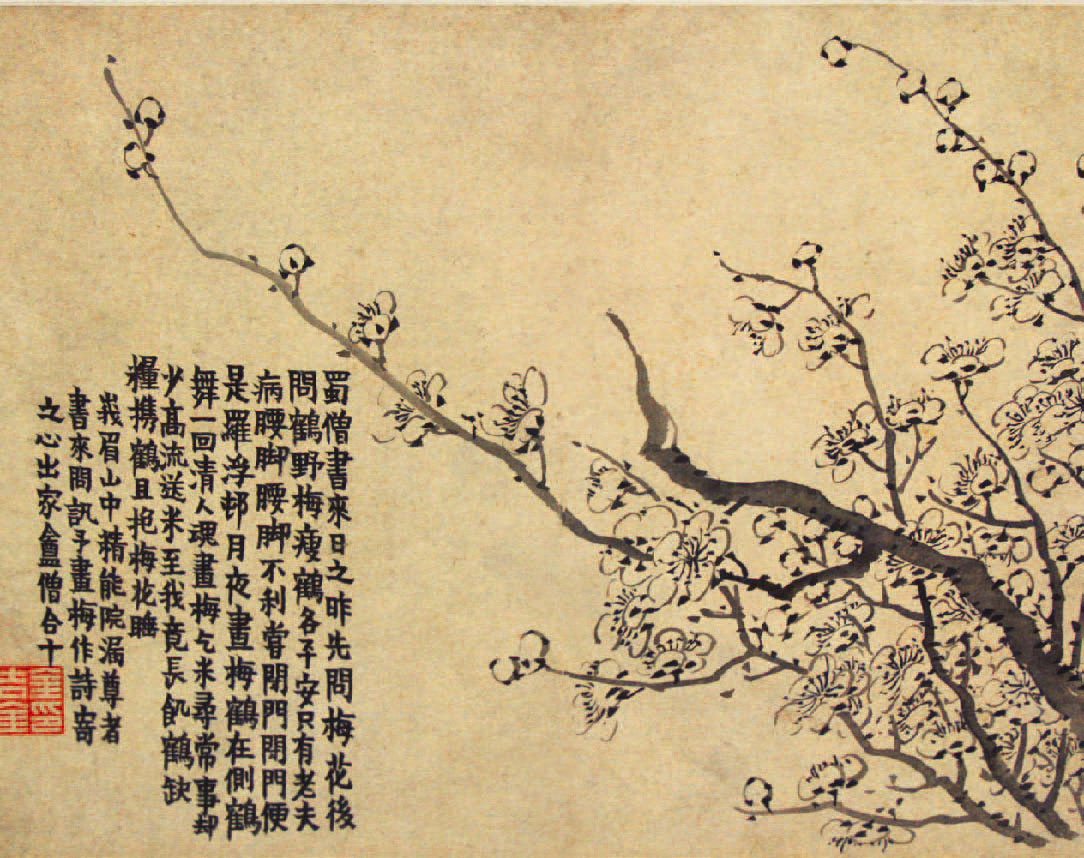 蜀僧書來日之昨先問梅花後
問鶴野梅瘦鶴各平安只有老夫
病腰脚腰脚不利嘗閉門閉門便
是羅浮邨月夜畫梅鶴在側鶴
舞一回清人魂畫梅乞米尋常事却
少高流送米至我竟長飢鶴缺
糧携鶴且抱梅花睡
峩眉山中精能院漏尊者
書來問訊予畫梅作詩寄
之心出家盦僧合十